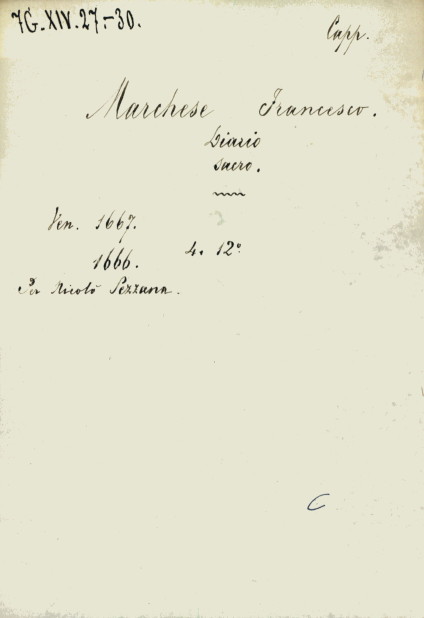 7G.XIV.27-30.
Capp.
Marchese Francesco.
Diario
sacro.
Ven. 1667.
1666. 4. 12°
Per Nicolò Pezzana.
C